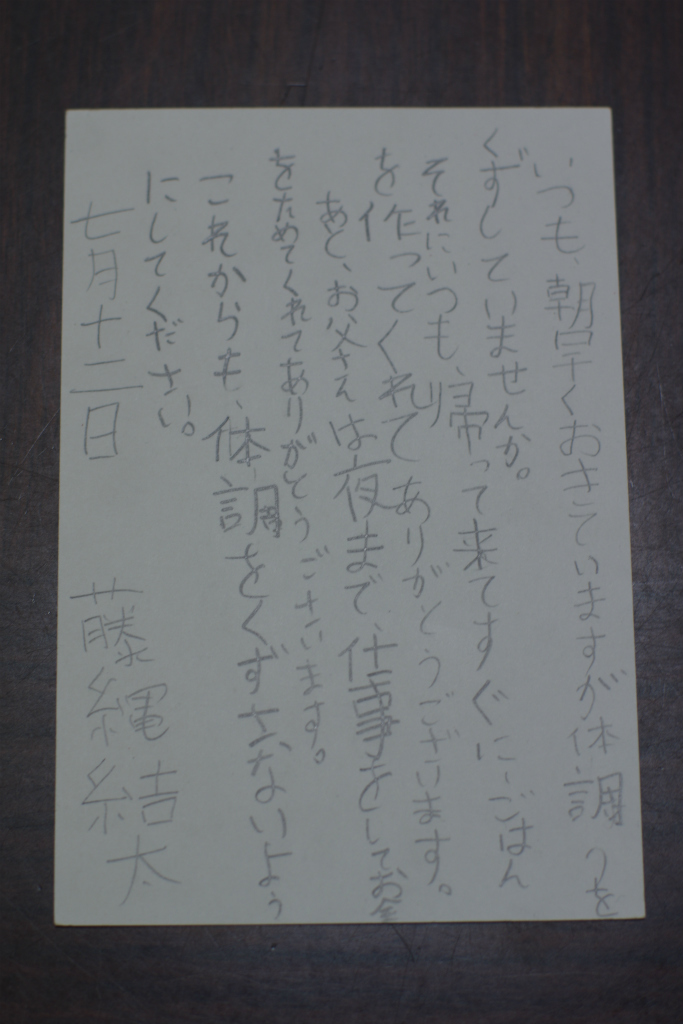 いつも、朝早くおきていますが体調りを
くずしていませんか。
それにいつも、帰って来てすぐにごはん
を作ってくれてありがとうございます。
あと、お父さんは夜まで、仕事をしてお金
をためてくれてありがとうございます。
これからも、体調をくずさないよう
にしてください。
七月十二日 藤縄結太